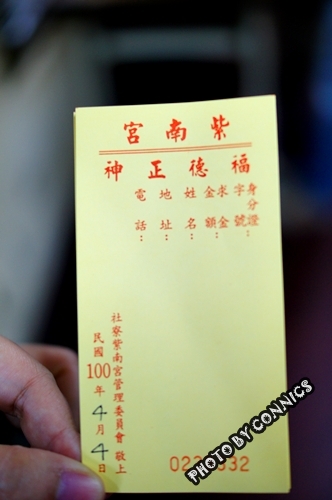 紫南宮
福德正神
身分證字號：
求金金額：
姓名：
地址：
電話：
社寮紫南宮管理委員會 敬上
民國100年4月4日
PHOTO BY CONNICS